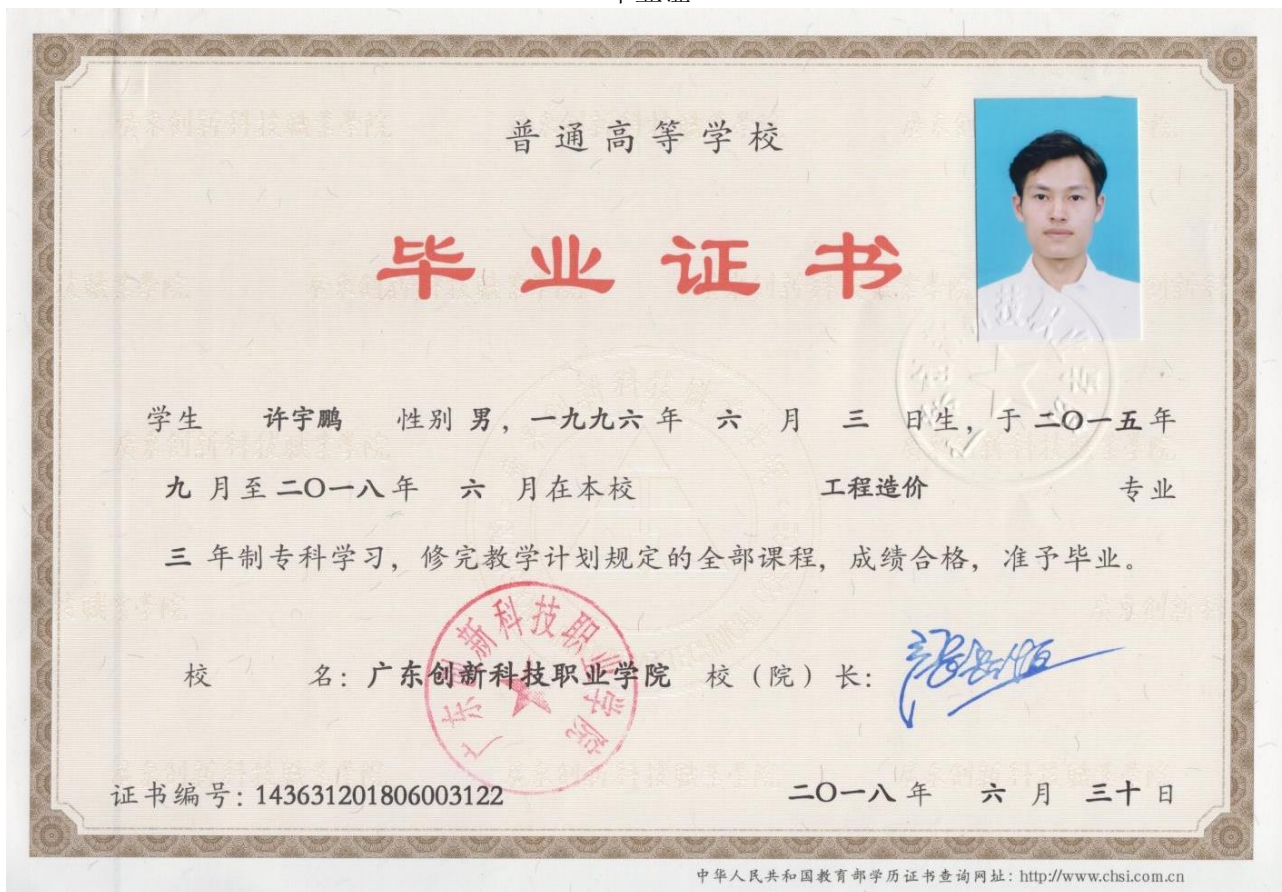 普通高等学校
毕业证书
学生 许宇鹏 性别 男，一九九六 年 六 月 三 日生，于 二〇一五 年
九 月至 二〇一八 年 六 月在本校 工程造价 专业
三 年制专科学习，修完教学计划规定的全部课程，成绩合格，准予毕业。
校 名：广东创新科技职业学院 校（院）长：
广东创新科技职业学院
证书编号：143631201806003122 二〇一八 年 六 月 三十 日
中华人民共和国教育部学历证书查询网址：http://www.chsi.com.cn